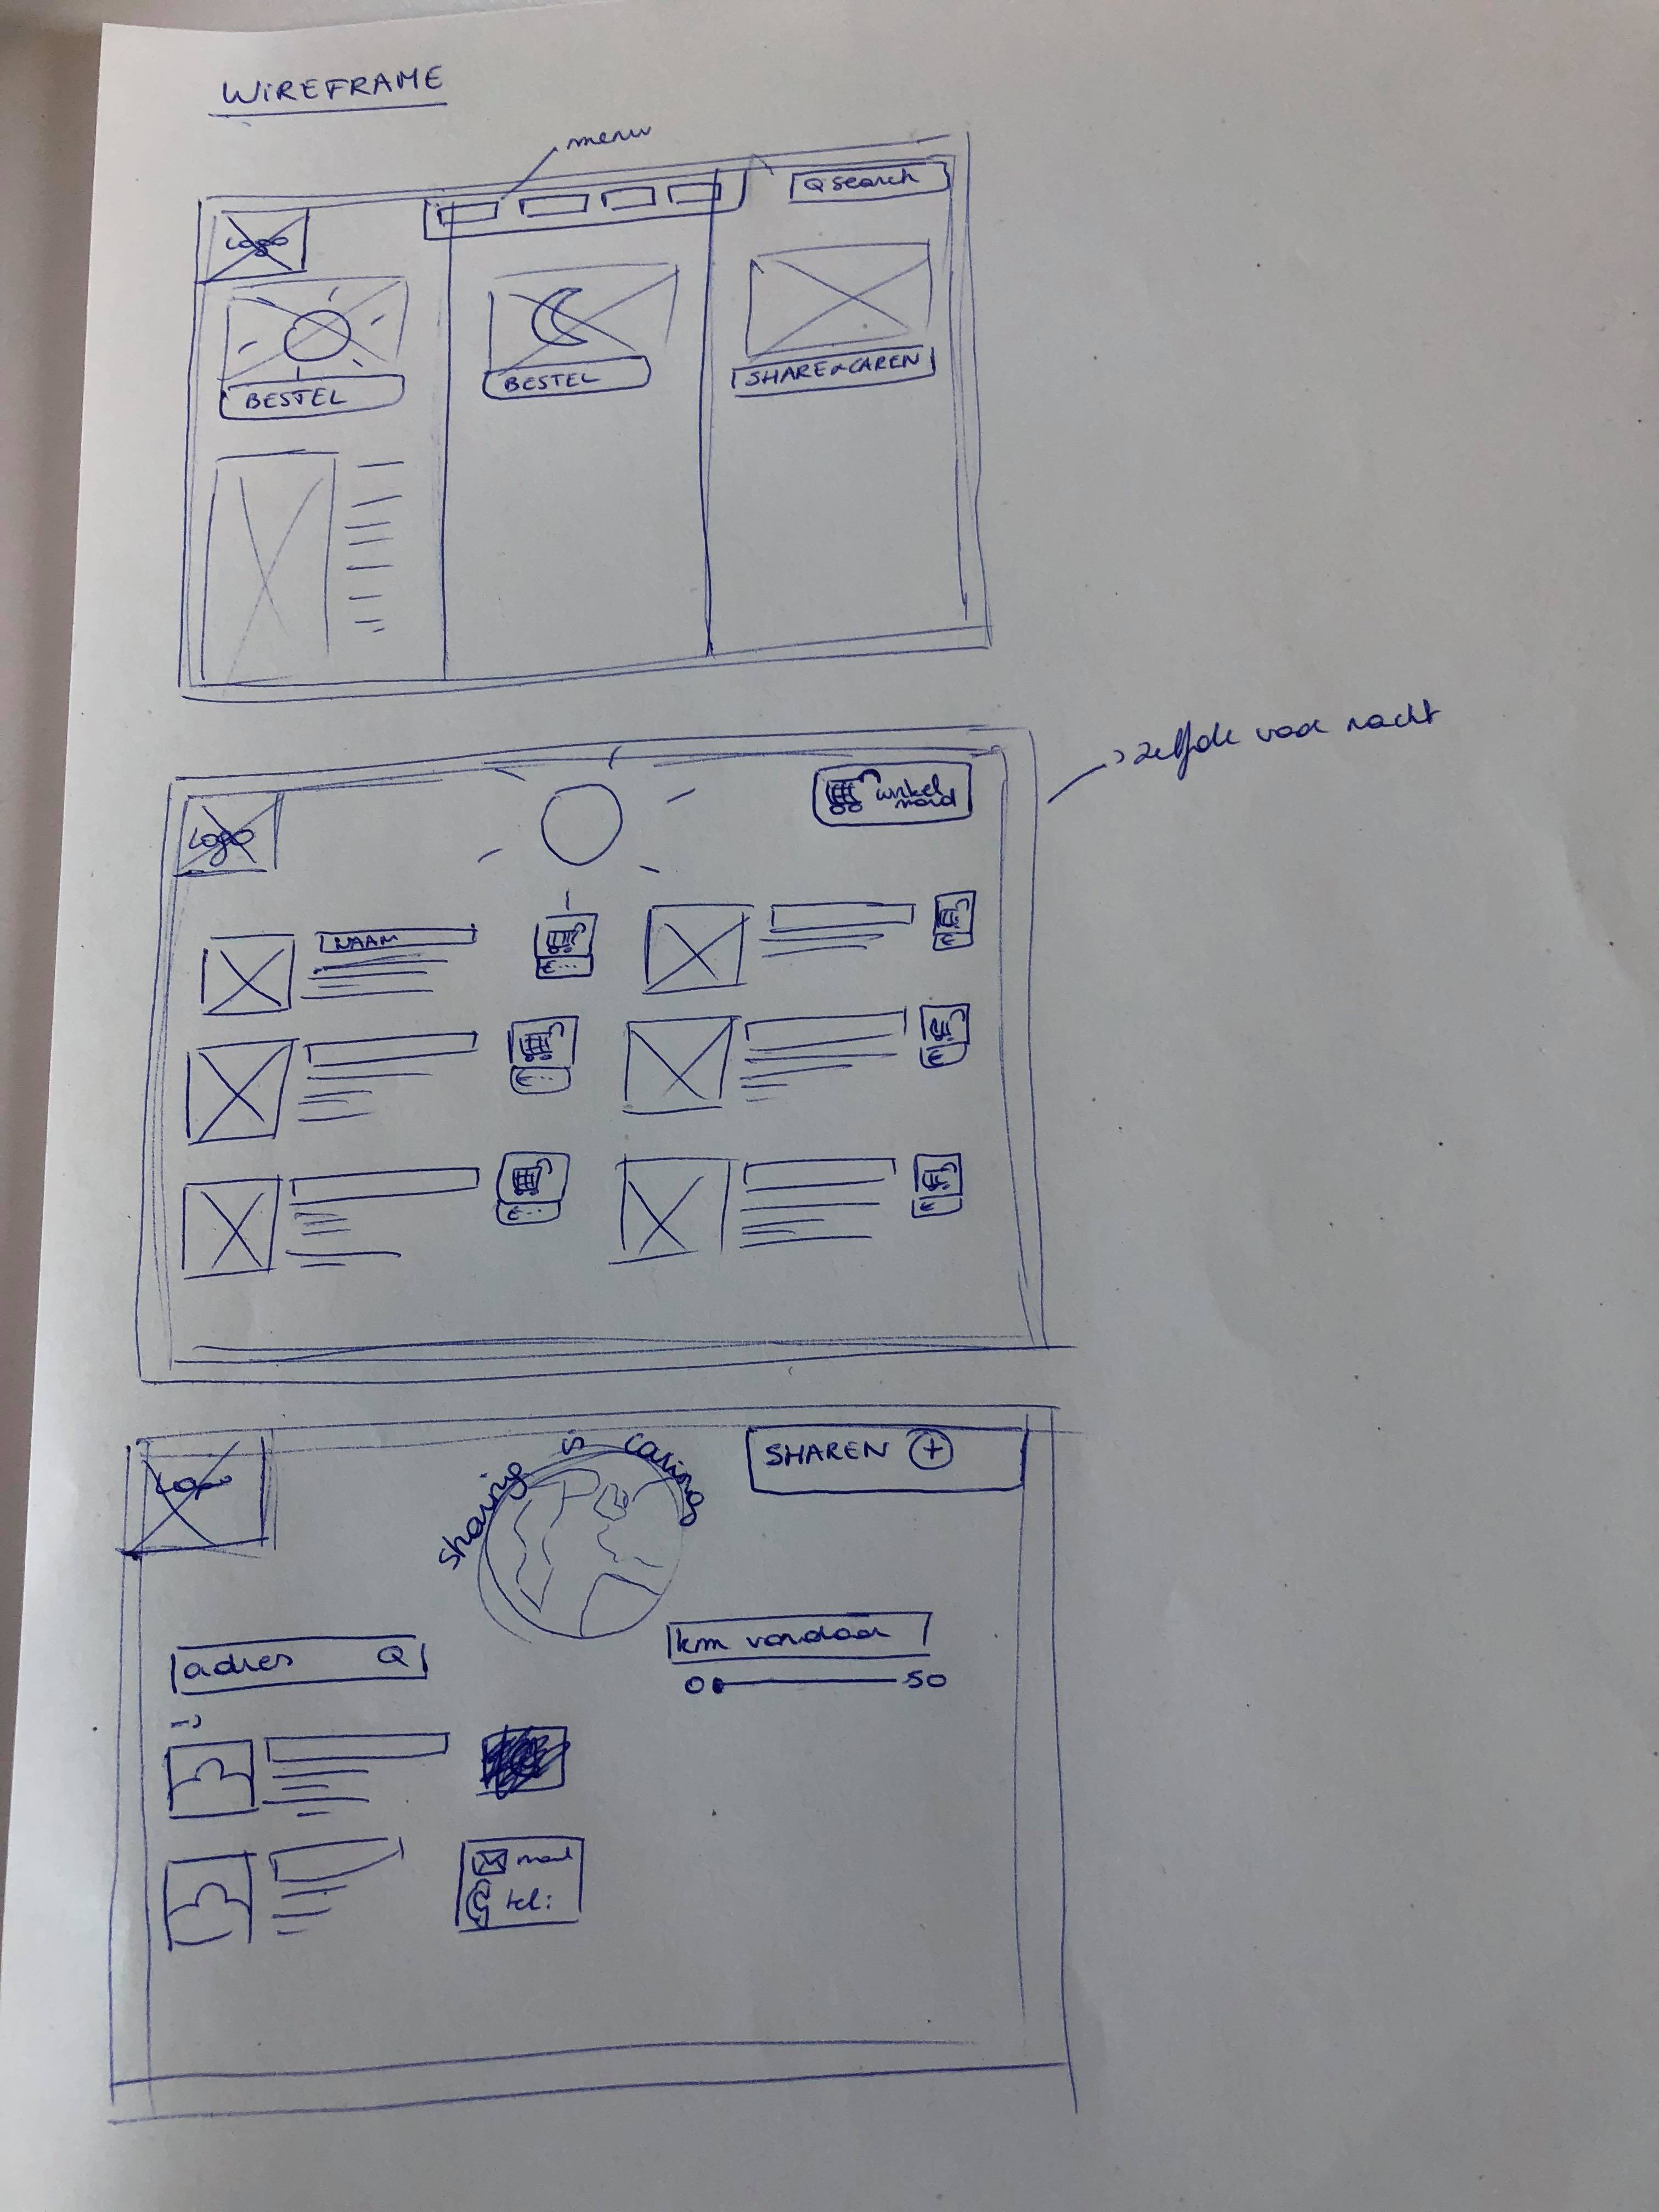 WIREFRAME
menu
Logo
Q search
BESTEL
BESTEL
SHARE & CAREN
zelfde voor nacht
Logo
winkel
mand
NAAM
€...
€
€...
€
€...
€
Logo
sharing is caring
SHAREN +
adres Q
km vandaar
0 50
mail
tel: